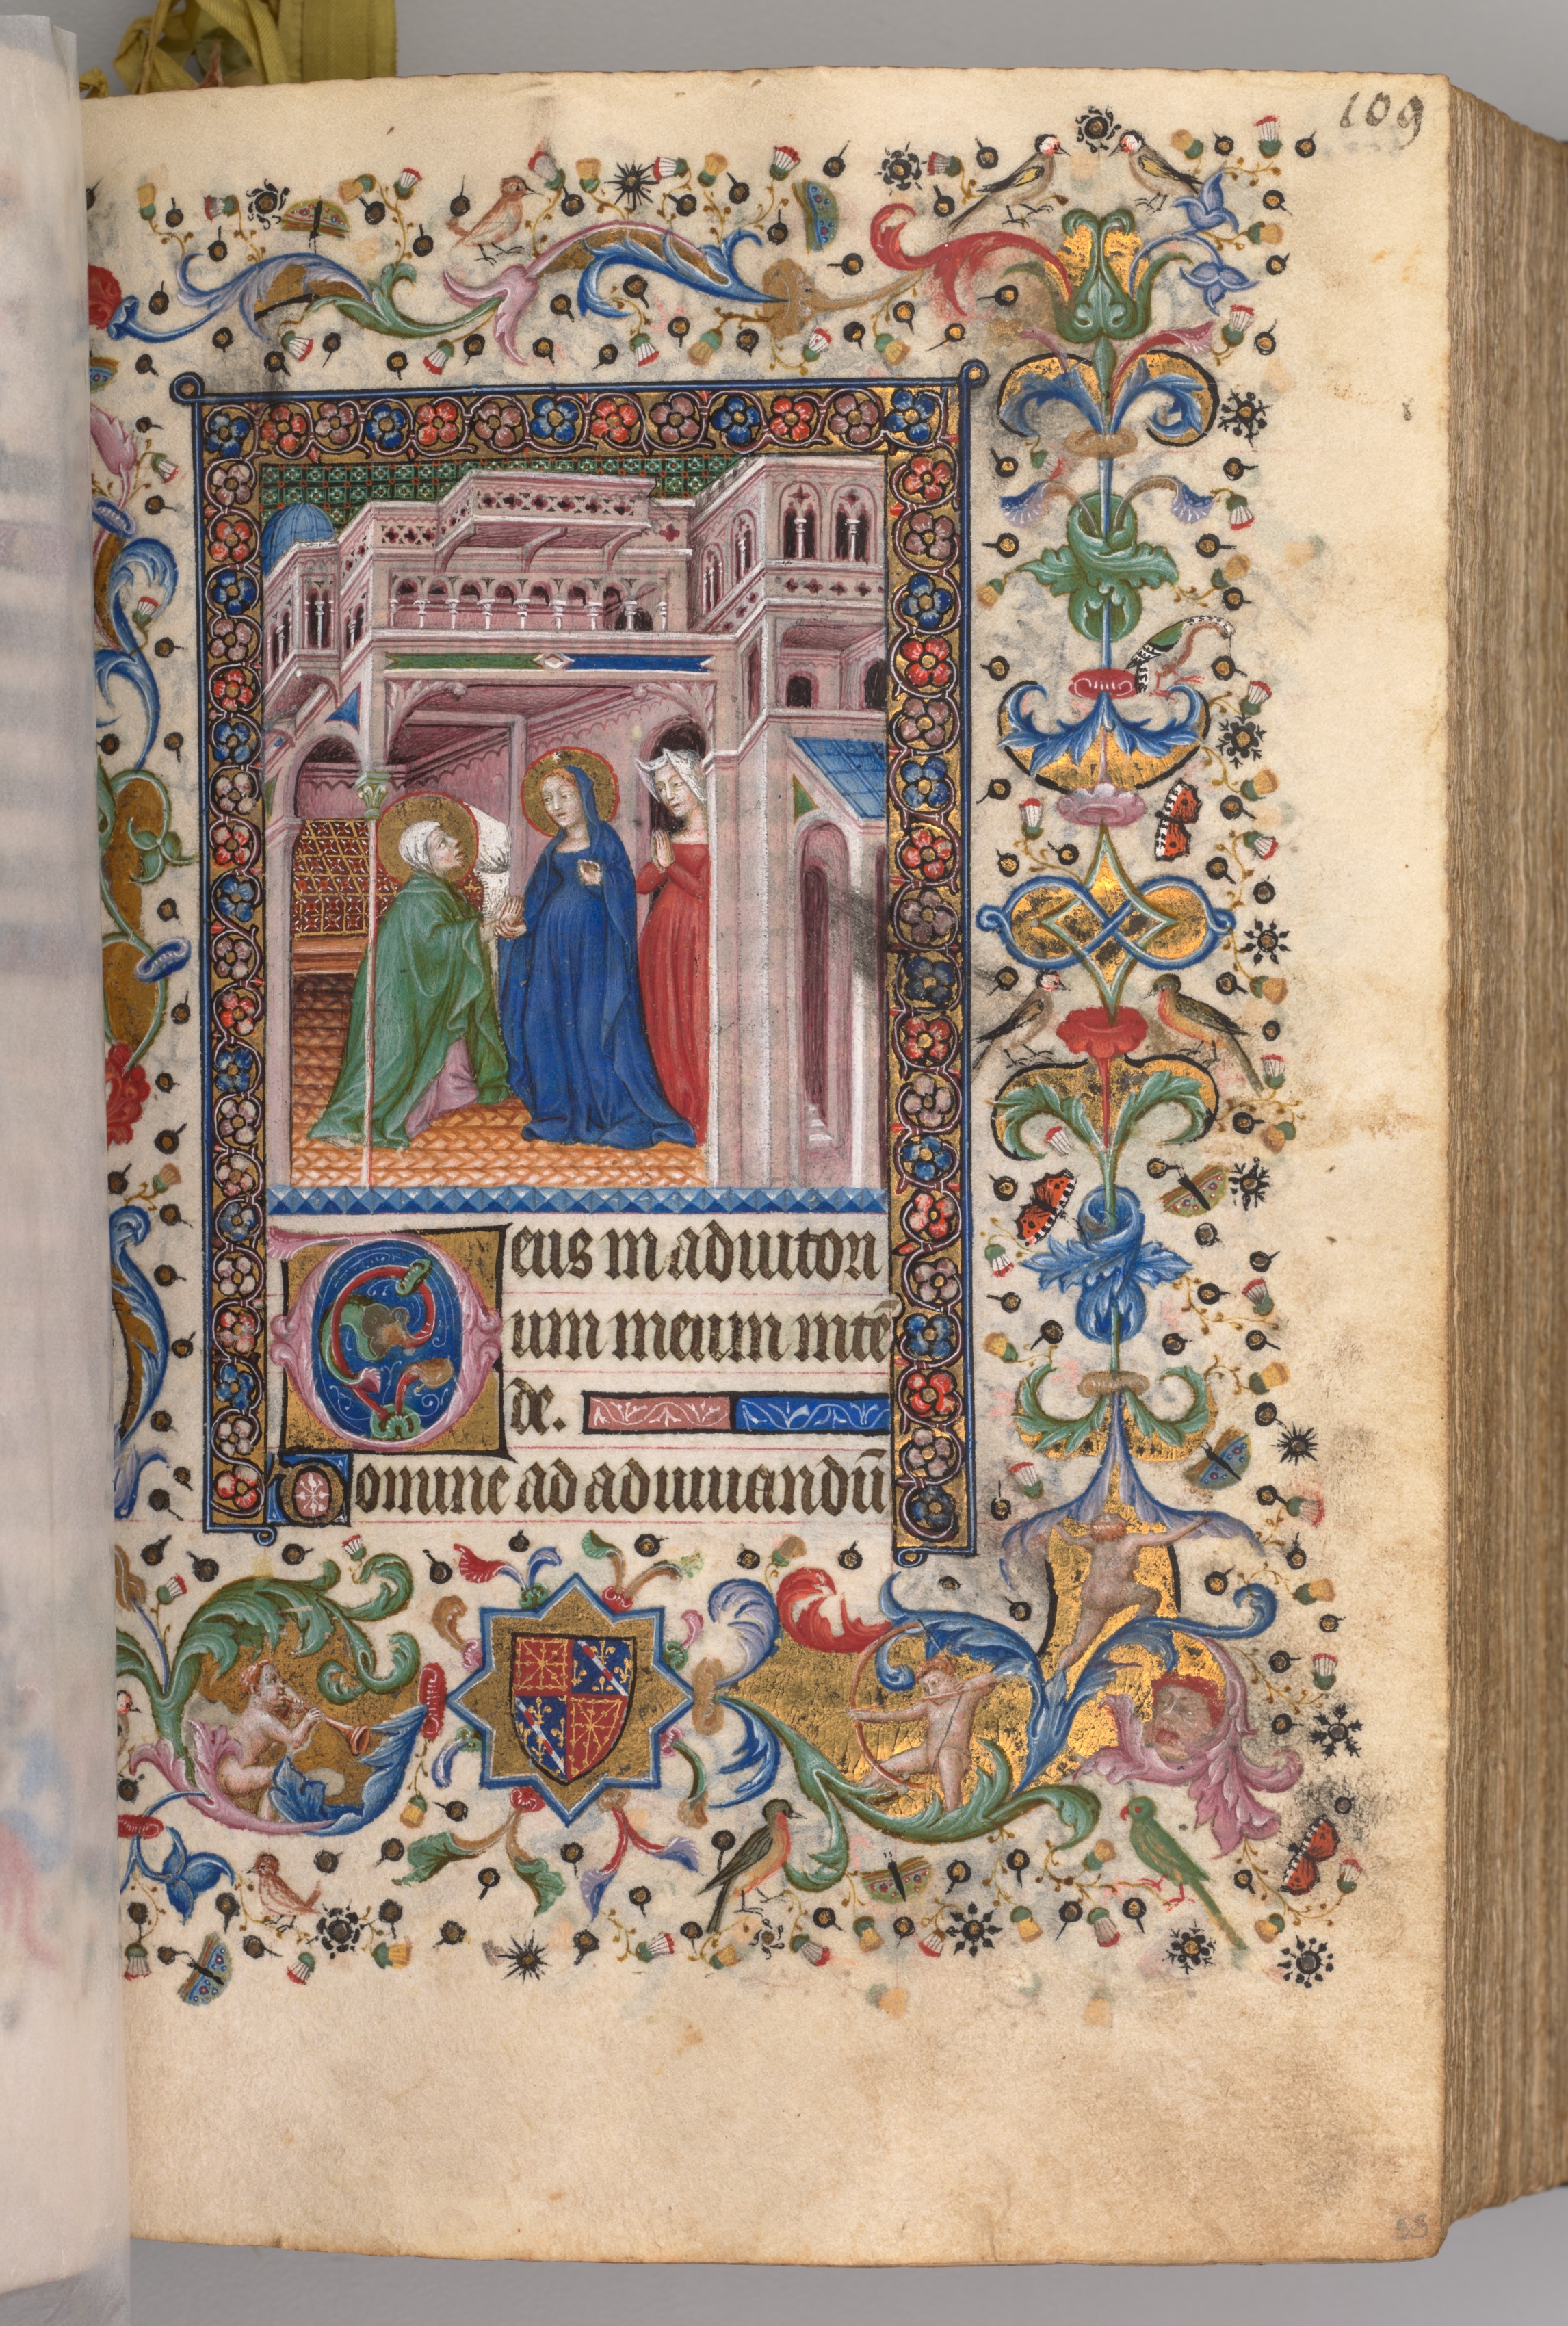 109
Deus in adiutori
um meum intē
de.
Domine ad adiuuandū
55